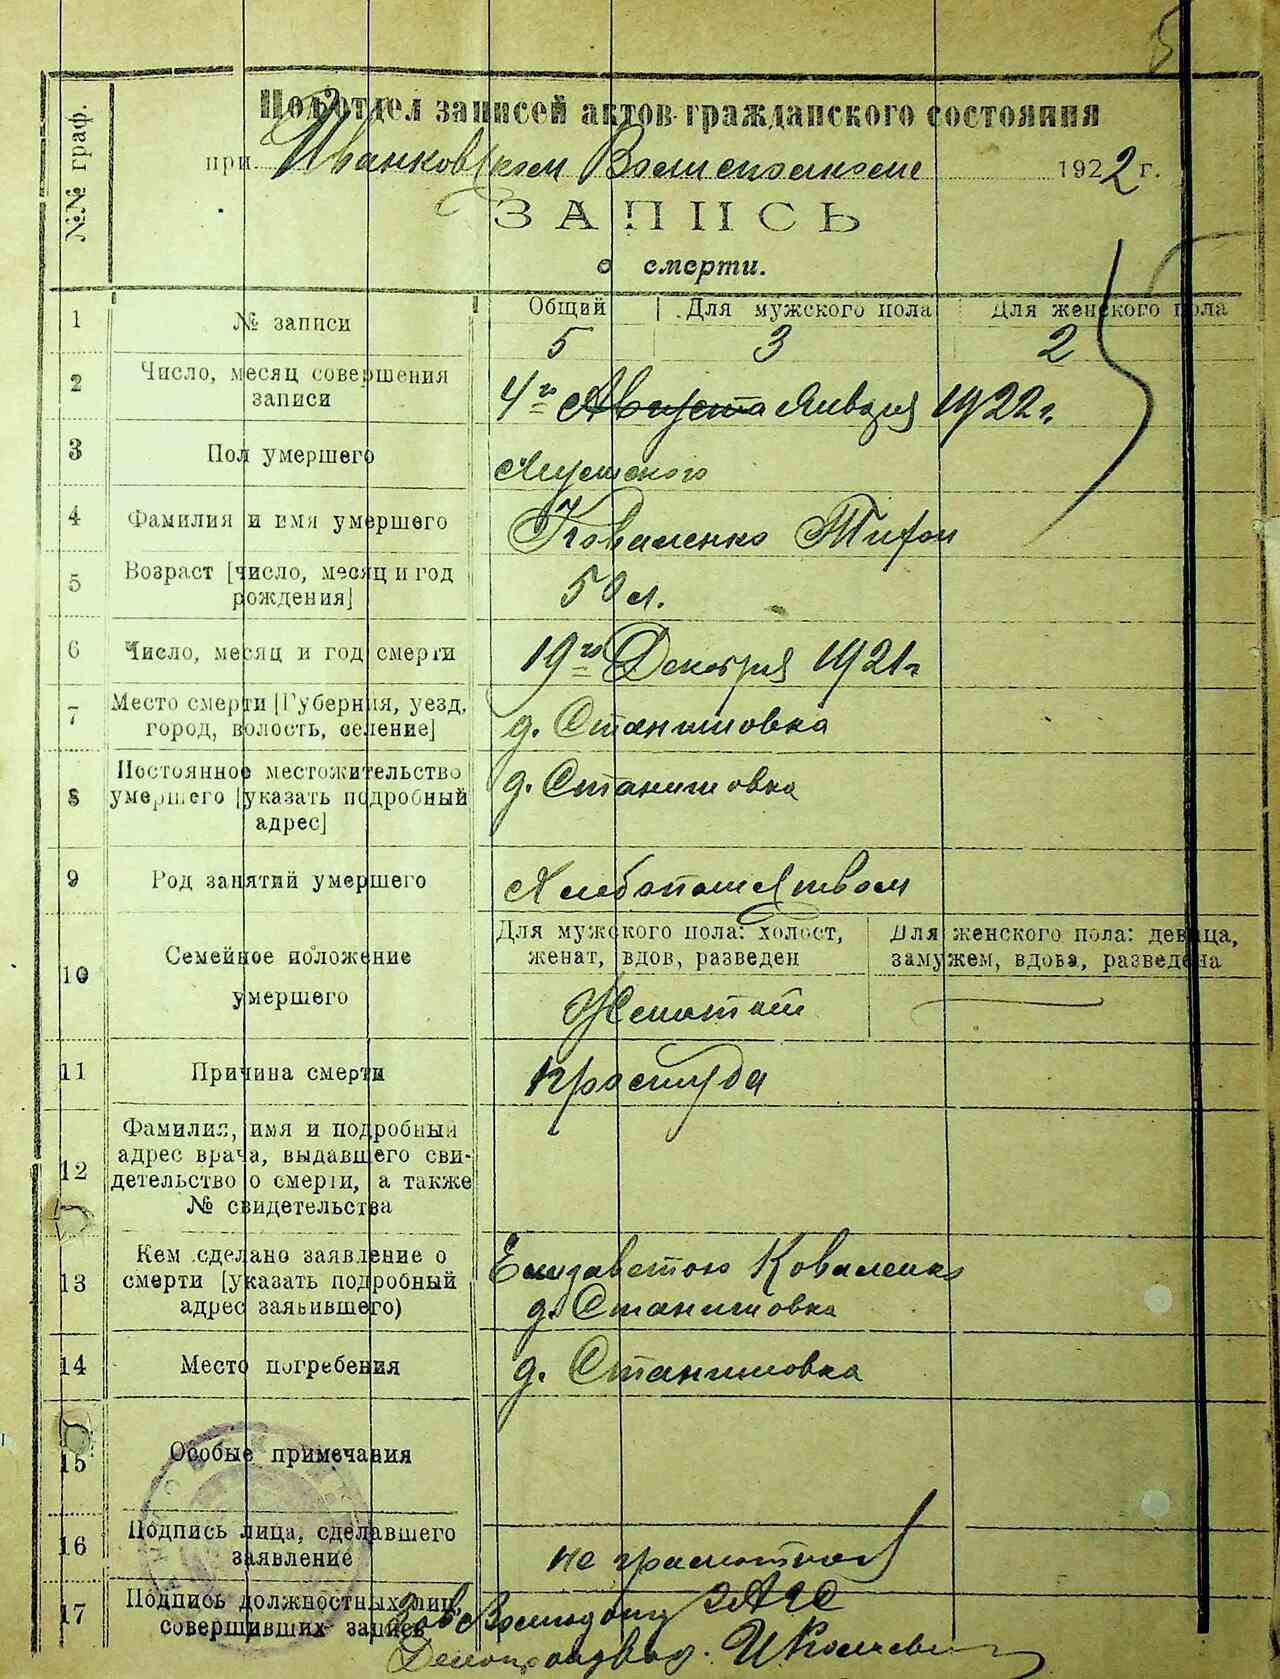 5
№№ граф.
Подотдел записей актов гражданского состояния
при Иванковском Волисполкоме 1922 г.
ЗАПИСЬ
о смерти.
1 № записи Общий Для мужского пола Для женского пола
5 3 2
2 Число, месяц совершения
записи
4го Августа Января 1922 г.
3 Пол умершего Мужского
4 Фамилия и имя умершего Коваленко Тихон
5 Возраст [число, месяц и год
рождения]
50 л.
6 Число, месяц и год смерти 19го Декабря 1921 г
7 Место смерти [Губерния, уезд,
город, волость, селение]
д. Станишовка
8 Постоянное местожительство
умершего [указать подробный
адрес]
д. Станишовка
9 Род занятий умершего Хлебопашеством
10 Семейное положение
умершего
Для мужского пола: холост,
женат, вдов, разведен
Для женского пола: девица,
замужем, вдова, разведена
Женатый
11 Причина смерти простуда
12 Фамилия, имя и подробный
адрес врача, выдавшего сви-
детельство о смерти, а также
№ свидетельства
13 Кем сделано заявление о
смерти [указать подробный
адрес заявившего)
Елизаветою Коваленко
д. Станишовка
14 Место погребения д. Станишовка
15 Особые примечания
16 Подпись лица, сделавшего
заявление
не грамотная
17 Подпись должностных лиц,
совершивших запись
Зав. ЗАГС
Делопроизвод.